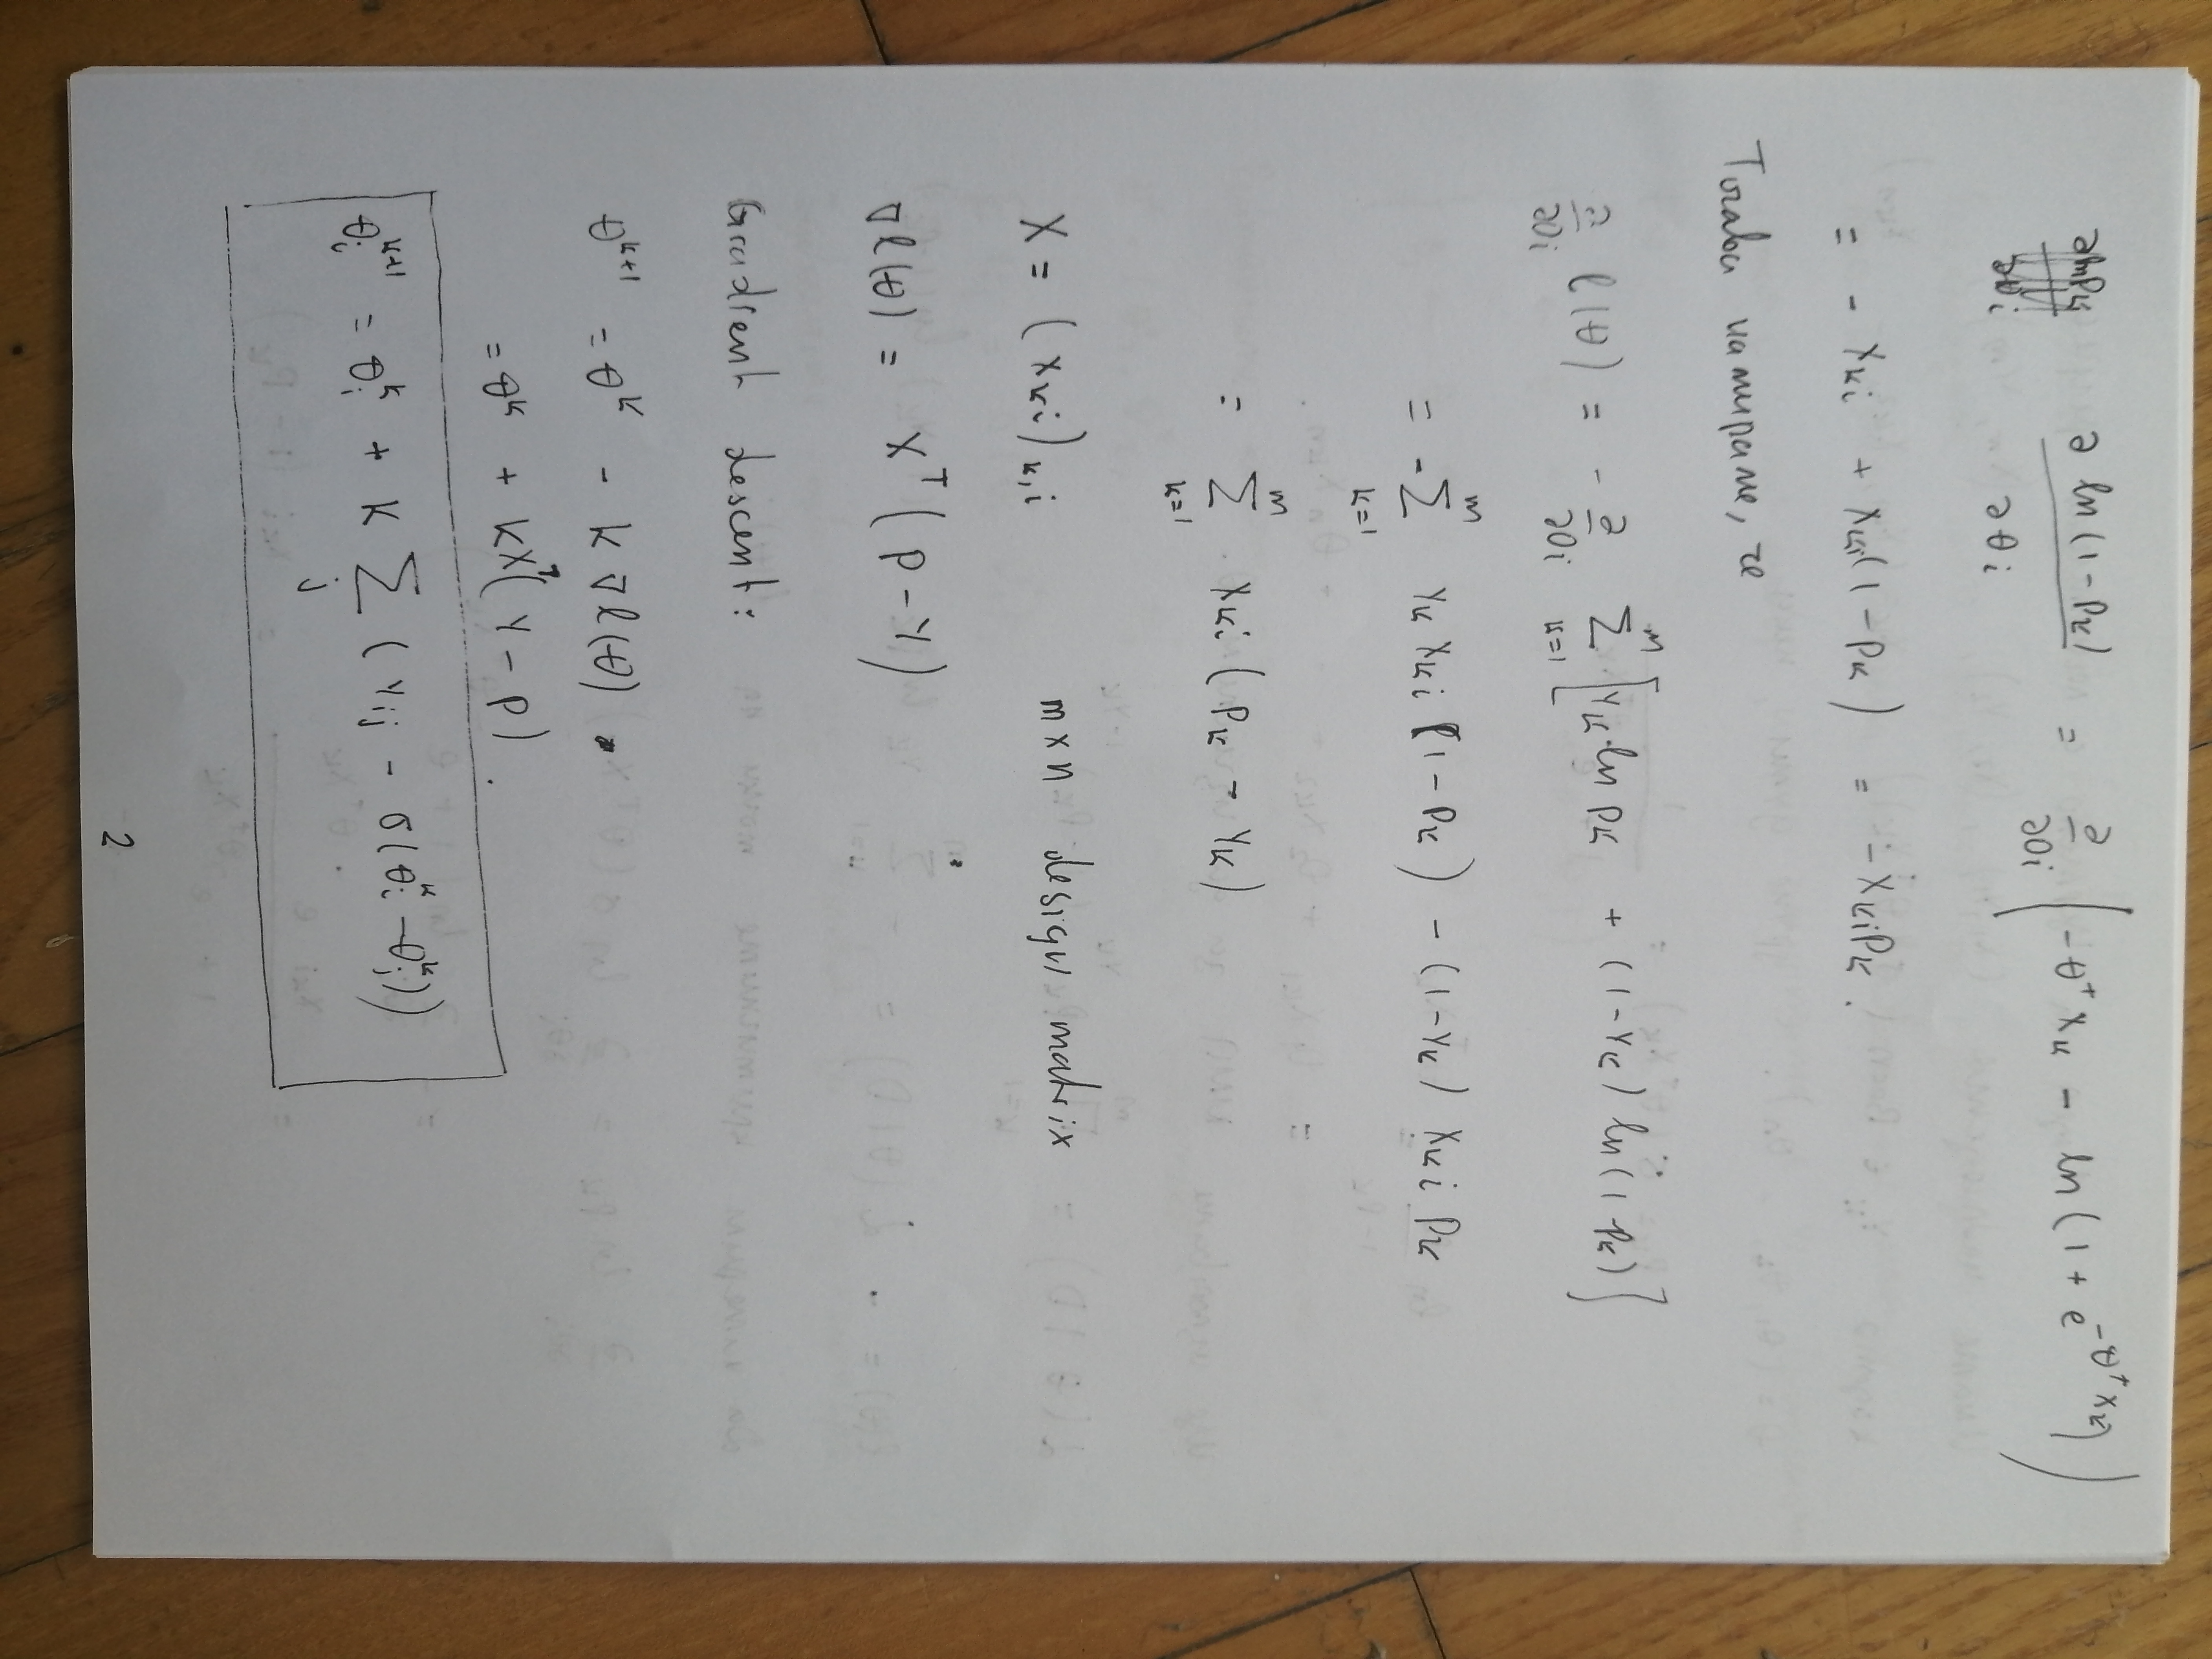 ∂ ln(1-pₖ) / ∂θᵢ = ∂/∂θᵢ (-θᵀxₖ - ln(1 + e^(-θᵀxₖ)))
= - xₖᵢ + xₖᵢ(1 - pₖ) = - xₖᵢpₖ.
Тогава намираме, че
∂/∂θᵢ l(θ) = - ∂/∂θᵢ ∑ₖ₌₁ᵐ [yₖ.ln pₖ + (1-yₖ) ln(1-pₖ)]
= - ∑ₖ₌₁ᵐ yₖxₖᵢ(1 - pₖ) - (1-yₖ) xₖᵢ pₖ
= ∑ₖ₌₁ᵐ xₖᵢ(pₖ - yₖ)
X = (xₖᵢ)ₖ,ᵢ m x n design matrix
∇l(θ) = Xᵀ(p - y)
Gradient descent:
θᵏ⁺¹ = θᵏ - K ∇l(θ).
= θᵏ + KXᵀ(y - p).
θᵢᵏ⁺¹ = θᵢᵏ + K ∑ⱼ (yᵢⱼ - σ(θᵢᵏ - θⱼᵏ))
2